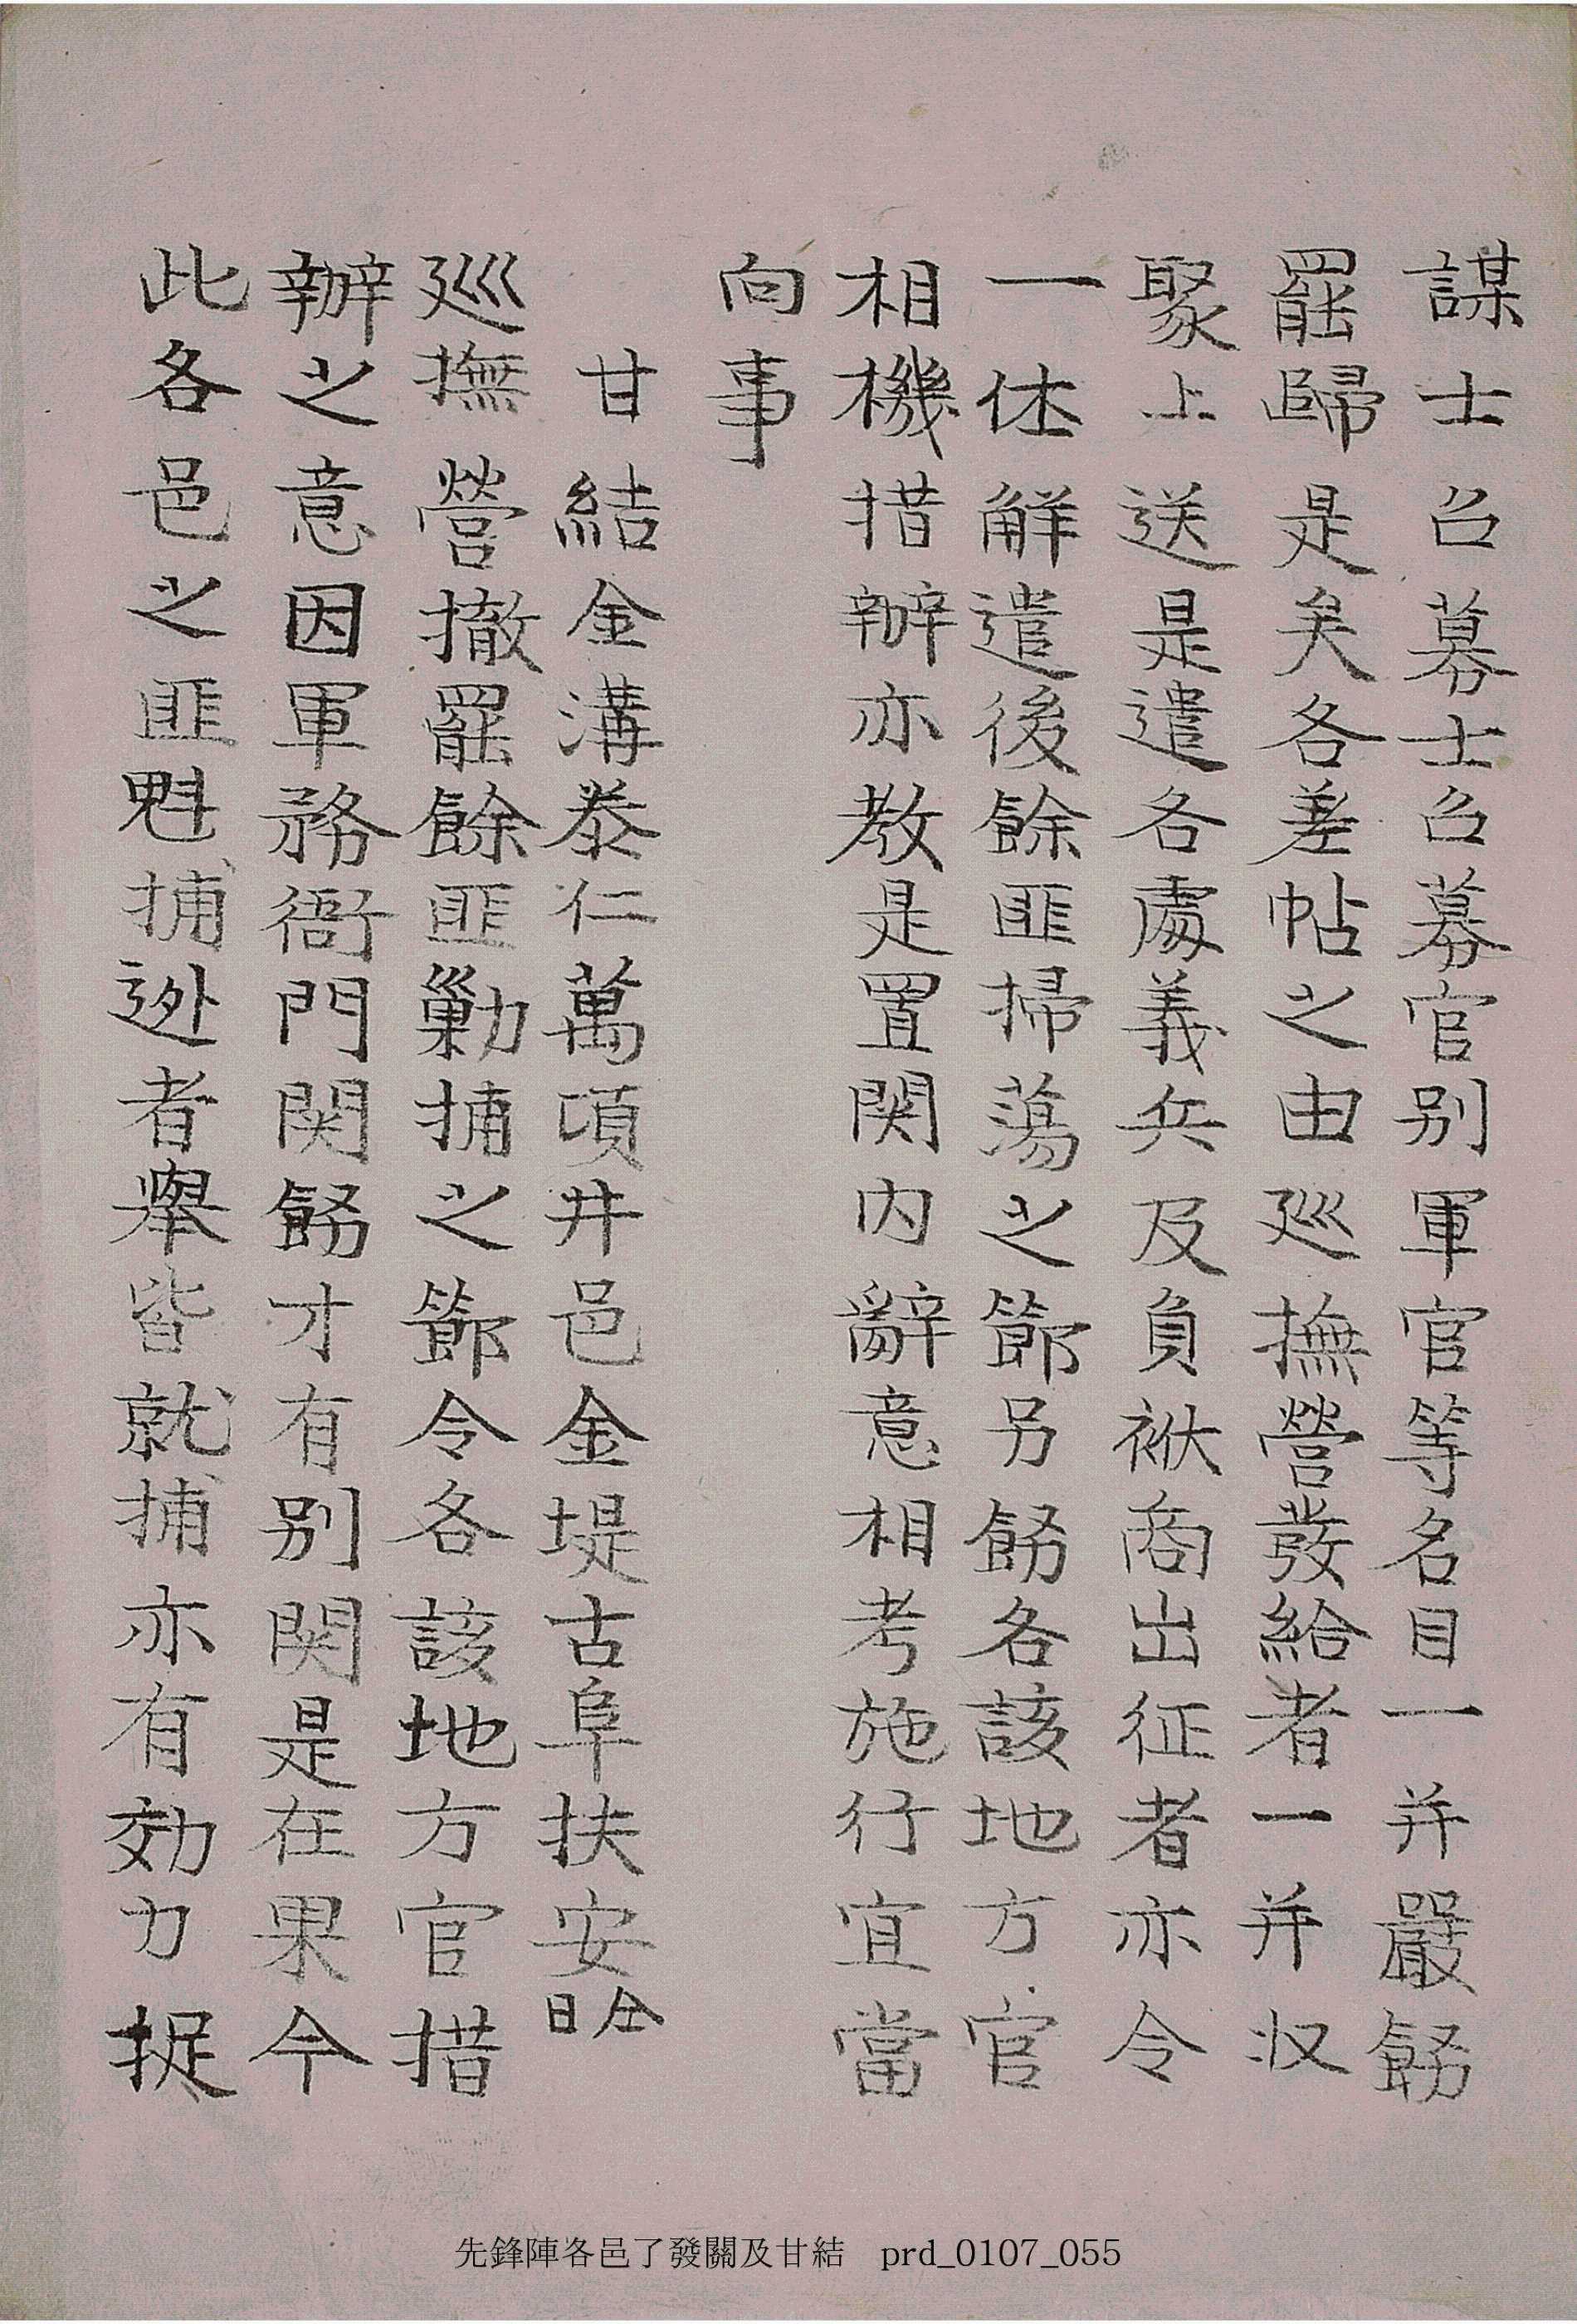 謀士召募士召募官別軍官等名目一并嚴飭
罷歸是矣各差帖之由巡撫營發給者一并收
聚上送是遣各處義兵及負褓商出征者亦令
一体解遣後餘匪掃蕩之節另飭各該地方官
相機措辦亦敎是置関內辭意相考施行宜當
向事
甘結金溝泰仁萬頃井邑金堤古阜扶安仝日
巡撫營撤罷餘匪勦捕之節令各該地方官措
辦之意因軍務衙門関飭才有別関是在果今
此各邑之匪魁捕逃者擧皆就捕亦有効力捉
先鋒陣各邑了發關及甘結 prd_0107_055